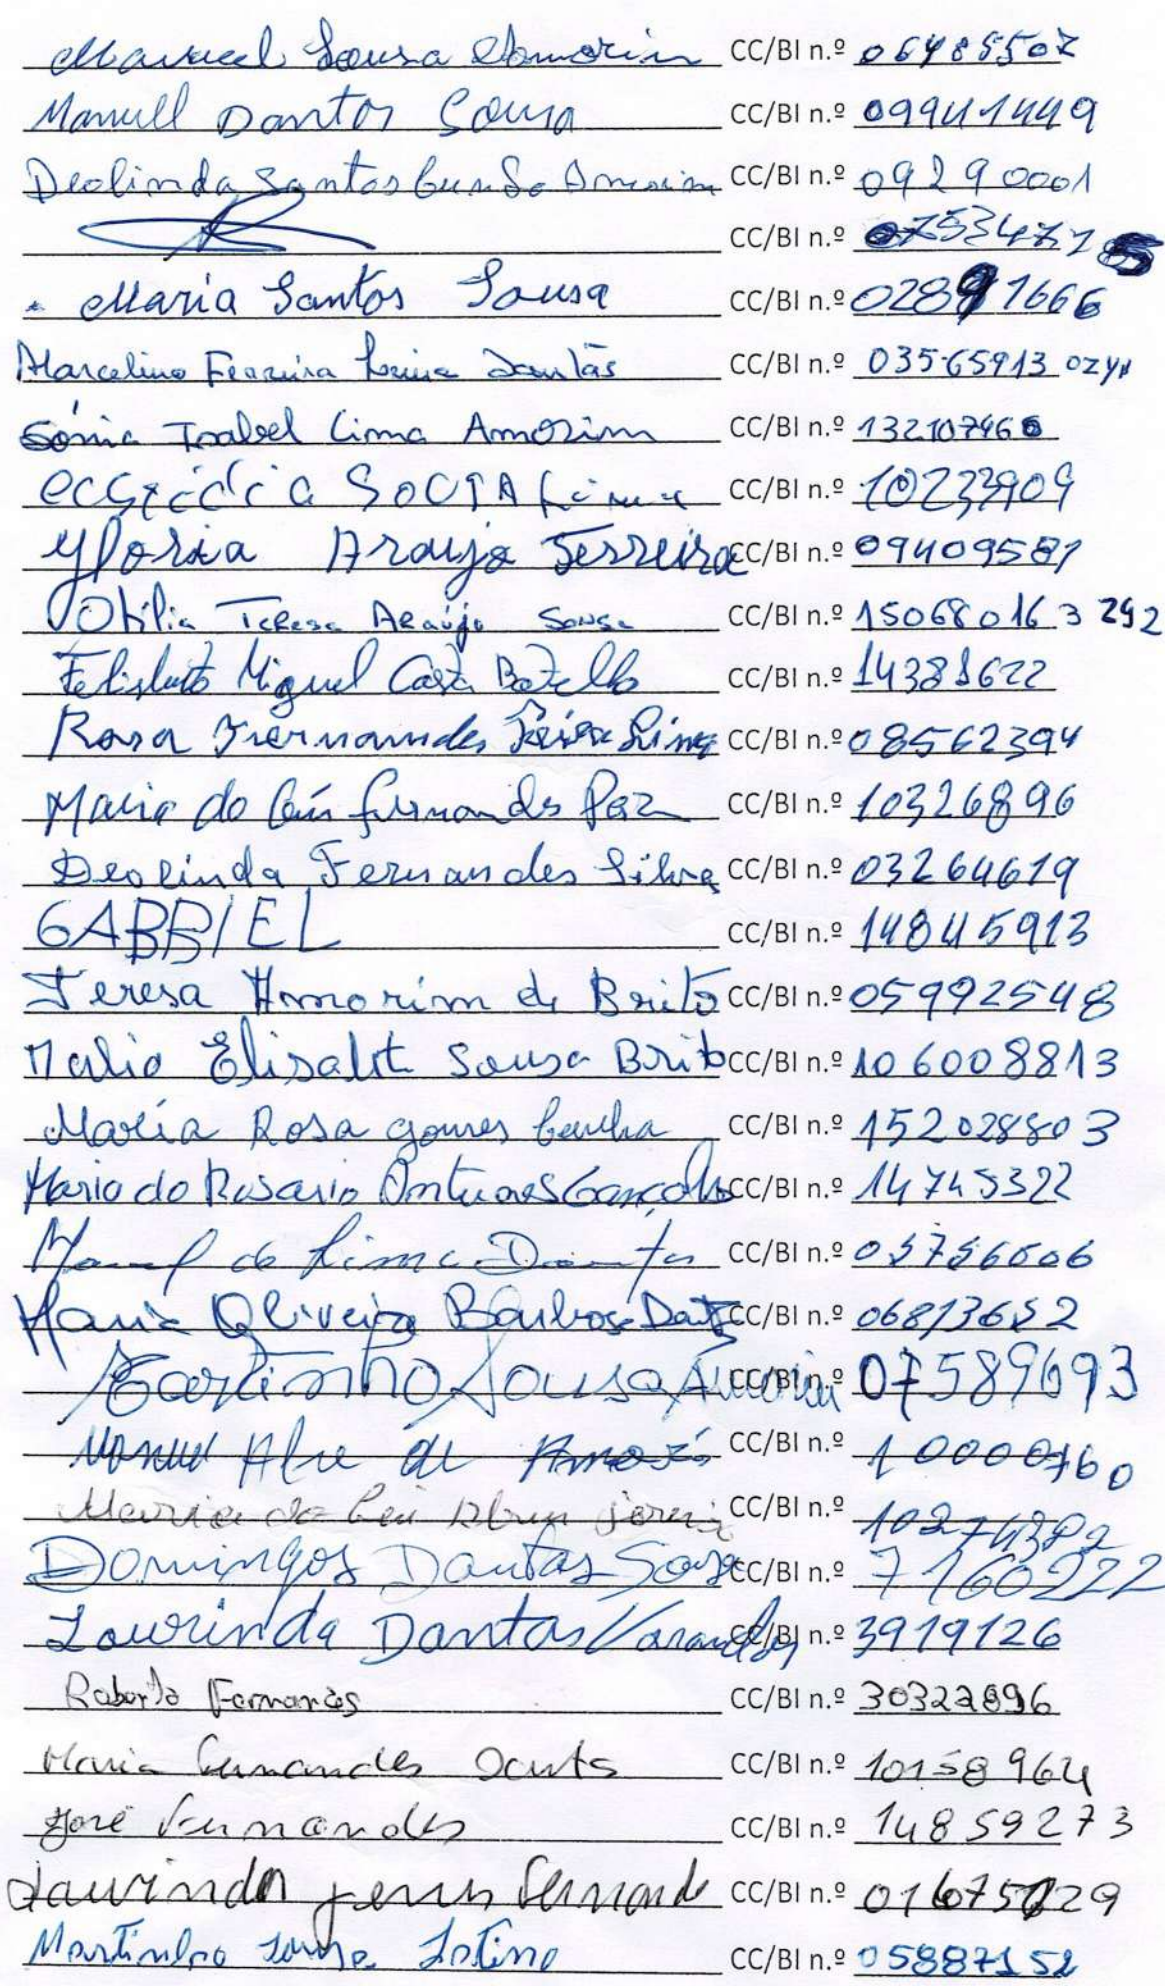 Manuel Sousa Amorim CC/BI n.º 06485507
Manuell Dantos Sousa CC/BI n.º 09941449
Deolinda Santos Cunha Amorim CC/BI n.º 09290001
CC/BI n.º
Maria Santos Sousa CC/BI n.º 02891666
Marcelino Ferreira Dantas CC/BI n.º 03565913 0ZY
Sónia Isabel Lima Amorim CC/BI n.º 132107466
CC/BI n.º 10233909
Gloria Araujo Ferreira CC/BI n.º 09409581
Otilia Teresa Araújo Sousa CC/BI n.º 150680163 ZY2
Felisberto Miguel Costa Botelho CC/BI n.º 14381622
Rosa Fernandes Lima CC/BI n.º 08562394
Maria do Céu Fernandes Paz CC/BI n.º 10326896
Deolinda Fernandes Silva CC/BI n.º 03264619
GABRIEL CC/BI n.º 14845913
Teresa Amorim de Brito CC/BI n.º 059925548
Maria Elisabete Sousa Brito CC/BI n.º 106008813
Maria Rosa gomes Cunha CC/BI n.º 152028803
Maria do Rosario Antunes Gonçalves CC/BI n.º 14745322
Manuel de Lima Dantas CC/BI n.º 05756606
Maria Oliveira Barbosa Dantas CC/BI n.º 06813652
Martinho Sousa Amorim CC/BI n.º 07589693
Manuel de CC/BI n.º 10000760
Maria do Céu CC/BI n.º 10274382
Domingos Dantas Sousa CC/BI n.º 7160222
Laurinda Dantas Varandas CC/BI n.º 3919126
Roberto Fernandes CC/BI n.º 30322896
Maria Fernandes Dantas CC/BI n.º 10158964
José Fernandes CC/BI n.º 14859273
Laurinda Fernandes CC/BI n.º
Martinho Sousa CC/BI n.º 05887152